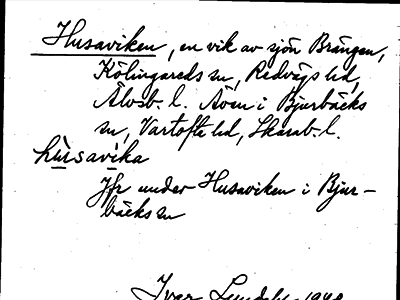 Husaviken, en vik av sjön Brängen,
Kölingareds sn, Redvägs hd,
Älvsb. l. Även i Bjurbäcks
sn, Vartofta hd, Skarab. l.
husavika
Jfr under Husaviken i Bjur-
bäcks sn
Ivar Lundahl 1940